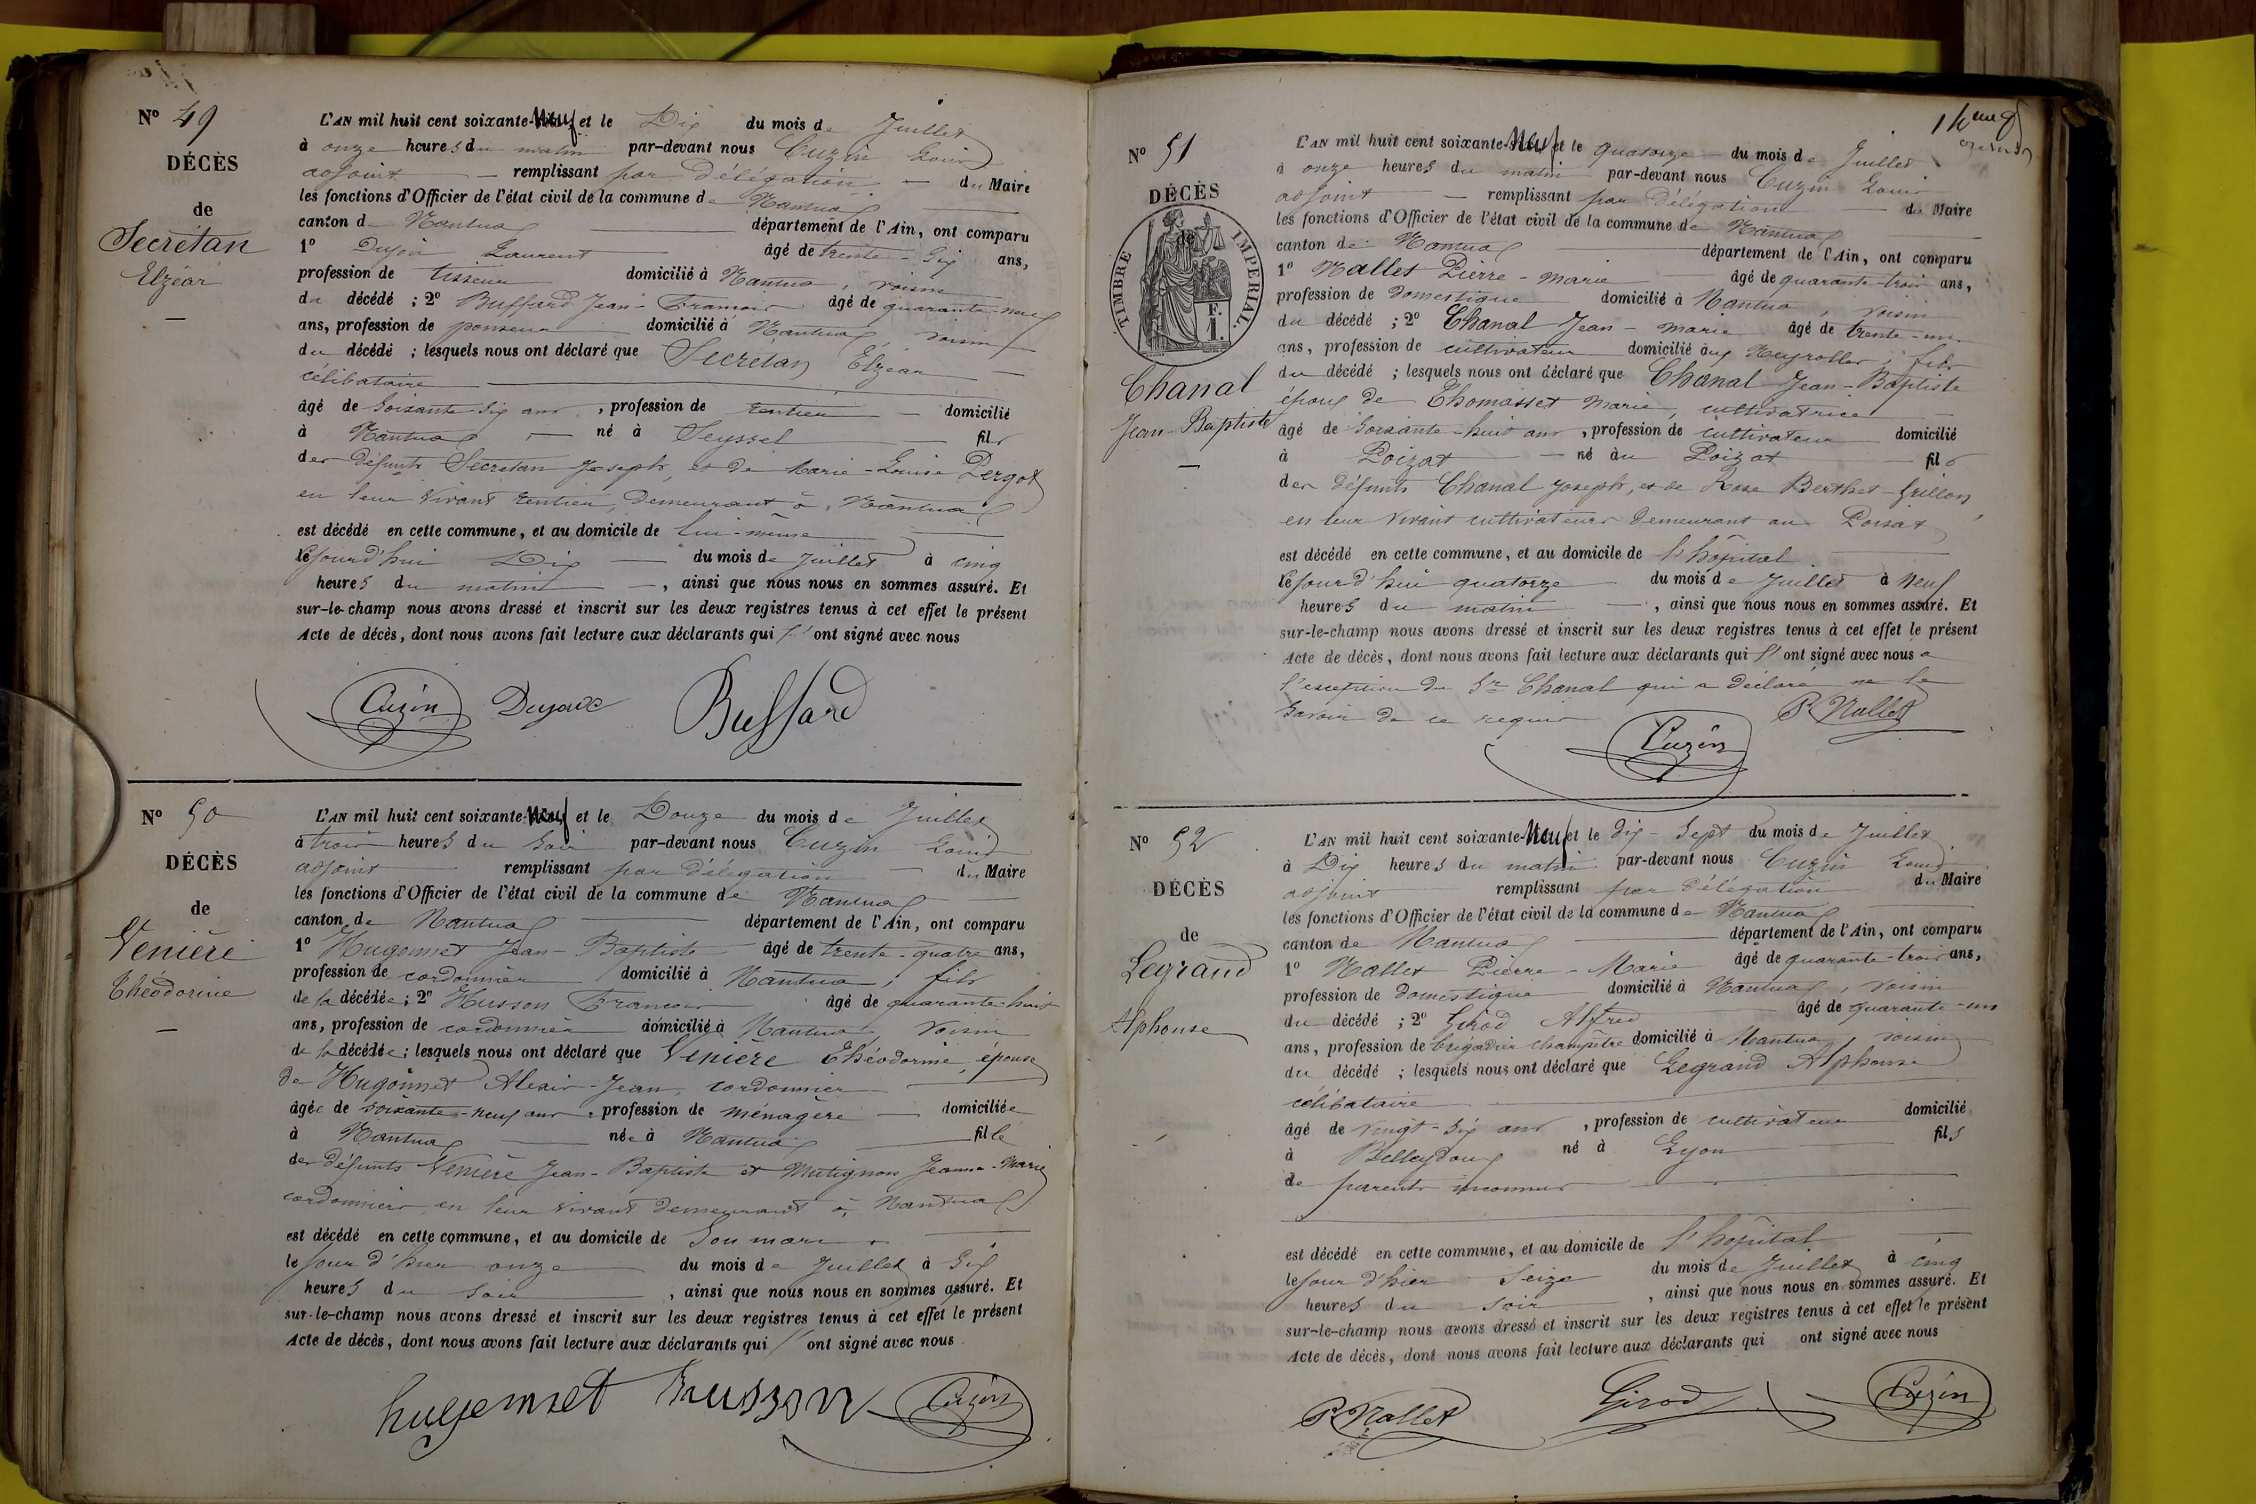 Nº 49
DÉCÈS
de
Secrétan
Elzéar
L'AN mil huit cent soixante-Neuf et le Dix du mois de Juillet
à onze heures du matin par-devant nous Cuzin Louis
adjoint remplissant par Délégation du Maire
les fonctions d'Officier de l'état civil de la commune de Nantua
canton de Nantua département de l'Ain, ont comparu
1º Laurent âgé de trente-six ans,
profession de tisseur domicilié à Nantua, voisin
du décédé ; 2º Buffard Jean-François âgé de quarante-neuf
ans, profession de ponceur domicilié à Nantua, voisin
du décédé ; lesquels nous ont déclaré que Secretan Elzéar
célibataire
âgé de soixante-six ans, profession de rentier domicilié
à Nantua né à Seyssel fils
des défunts Secretan Joseph, et de Marie-Louise Pergot
en leur vivant rentier, demeurant à Nantua
est décédé en cette commune, et au domicile de lui-même
le jourd'hui Dix du mois de Juillet à cinq
heures du matin, ainsi que nous nous en sommes assuré. Et
sur-le-champ nous avons dressé et inscrit sur les deux registres tenus à cet effet le présent
Acte de décès, dont nous avons fait lecture aux déclarants qui l'ont signé avec nous
Cuzin Buffard
Nº 50
DÉCÈS
de
Venière
Théodorine
L'AN mil huit cent soixante-Neuf et le Douze du mois de Juillet
à trois heures du soir par-devant nous Cuzin Louis
adjoint remplissant par délégation du Maire
les fonctions d'Officier de l'état civil de la commune de Nantua
canton de Nantua département de l'Ain, ont comparu
1º Hugonnet Jean-Baptiste âgé de trente-quatre ans,
profession de cordonnier domicilié à Nantua, fils
de la décédée ; 2º Husson François âgé de quarante-huit
ans, profession de cordonnier domicilié à Nantua, voisin
de la décédée ; lesquels nous ont déclaré que Venière Théodorine, épouse
de Hugonnet Alexis-Jean, cordonnier
âgée de soixante-neuf ans, profession de ménagère domiciliée
à Nantua née à Nantua fille
des défunts Venière Jean-Baptiste et Mutignon Jeanne-Marie
cordonniers en leur vivant demeurant à Nantua
est décédé en cette commune, et au domicile de Son mari
le jour d'hier onze du mois de Juillet à six
heures du soir, ainsi que nous nous en sommes assuré. Et
sur-le-champ nous avons dressé et inscrit sur les deux registres tenus à cet effet le présent
Acte de décès, dont nous avons fait lecture aux déclarants qui l'ont signé avec nous
hugonnet husson Cuzin
Nº 51
DÉCÈS
TIMBRE IMPÉRIAL
F.
1.
Chanal
Jean-Baptiste
L'AN mil huit cent soixante-Neuf et le quatorze du mois de Juillet
à onze heures du matin par-devant nous Cuzin Louis
adjoint remplissant par délégation du Maire
les fonctions d'Officier de l'état civil de la commune de Nantua
canton de Nantua département de l'Ain, ont comparu
1º Nallet Pierre-Marie âgé de quarante-trois ans,
profession de domestique domicilié à Nantua, voisin
du décédé ; 2º Chanal Jean-Marie âgé de trente-un
ans, profession de cultivateur domicilié aux Neyrolles, fils
du décédé ; lesquels nous ont déclaré que Chanal Jean-Baptiste
époux de Thomasset Marie, cultivatrice
âgé de Soixante-huit ans, profession de cultivateur domicilié
à Poizat né au Poizat fils
des défunts Chanal Joseph, et de Rose Berthet-Grillon
en leur vivant cultivateurs demeurant au Poizat
est décédé en cette commune, et au domicile de l'hôpital
le jourd'hui quatorze du mois de Juillet à neuf
heures du matin, ainsi que nous nous en sommes assuré. Et
sur-le-champ nous avons dressé et inscrit sur les deux registres tenus à cet effet le présent
Acte de décès, dont nous avons fait lecture aux déclarants qui l'ont signé avec nous à
l'exception du Sr Chanal qui a déclaré ne le
savoir de ce requis
P. Nallet
Cuzin
Nº 52
DÉCÈS
de
Legrand
Alphonse
L'AN mil huit cent soixante-Neuf et le dix-Sept du mois de Juillet
à Dix heures du matin par-devant nous Cuzin Louis
adjoint remplissant par délégation du Maire
les fonctions d'Officier de l'état civil de la commune de Nantua
canton de Nantua département de l'Ain, ont comparu
1º Nallet Pierre-Marie âgé de quarante-trois ans,
profession de domestique domicilié à Nantua, voisin
du décédé ; 2º Girod Alfred âgé de quarante-un
ans, profession de brigadier champêtre domicilié à Nantua, voisin
du décédé ; lesquels nous ont déclaré que Legrand Alphonse
célibataire
âgé de vingt-six ans, profession de cultivateur domicilié
à Belleydoux né à Lyon fils
de parents inconnus
est décédé en cette commune, et au domicile de l'hôpital
le jour d'hier Seize du mois de Juillet à cinq
heures du soir, ainsi que nous nous en sommes assuré. Et
sur-le-champ nous avons dressé et inscrit sur les deux registres tenus à cet effet le présent
Acte de décès, dont nous avons fait lecture aux déclarants qui ont signé avec nous
P. Nallet Girod Cuzin